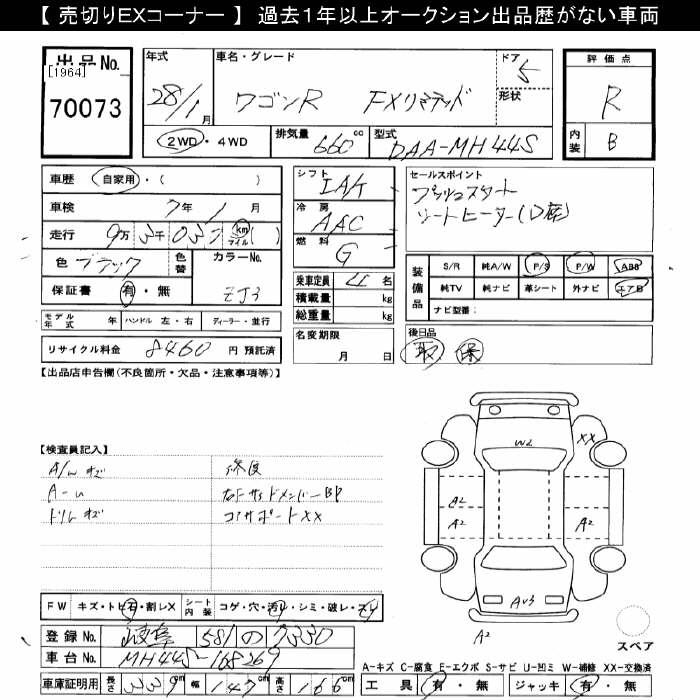 【 売切りEXコーナー 】 過去1年以上オークション出品歴がない車両
出品No.
[1964]
70073
年式
28/1月
車名・グレード
ワゴンR FXリミテッド
ドア
5
形状
評価点
R
内装
B
2WD・4WD
排気量
660cc
型式
DAA-MH44S
車歴
自家用・( )
車検
7年1月
走行
9万3千03 kmマイル( )
色
ブラック
色替
カラーNo.
ZJ3
保証書
有・無
モデル年式 年
ハンドル 左・右
ディーラー・並行
リサイクル料金
8460円 預託済
シフト
IAT
冷房
AAC
燃料
G
乗車定員
4名
積載量 kg
総重量 kg
名変期限
月 日
セールスポイント
プッシュスタート
シートヒーター(D席)
装備品
S/R 純A/W P/S P/W ABS
純TV 純ナビ 革シート 外ナビ エアB
ナビ型番:
後日品
取 保
【出品店申告欄(不良箇所・欠品・注意事項等)】
【検査員記入】
A/W キズ
修復
A-U
右Fサイドメンバー BP
ドリムキズ
コアサポートXX
W2
XX
A2
A2
A2
AU3
A2
スペア
FW
キズ・トビ石・割レX
シート内装
コゲ・穴・汚レ・シミ・破レ・スリ
登録No.
岐阜 581 の 7330
車台No.
MH44S-168269
車庫証明用
長さ 339cm
幅 147cm
高さ 166cm
A-キズ C-腐食 E-エクボ S-サビ U-凹ミ W-補修 XX-交換済
工具 有・無
ジャッキ 有・無